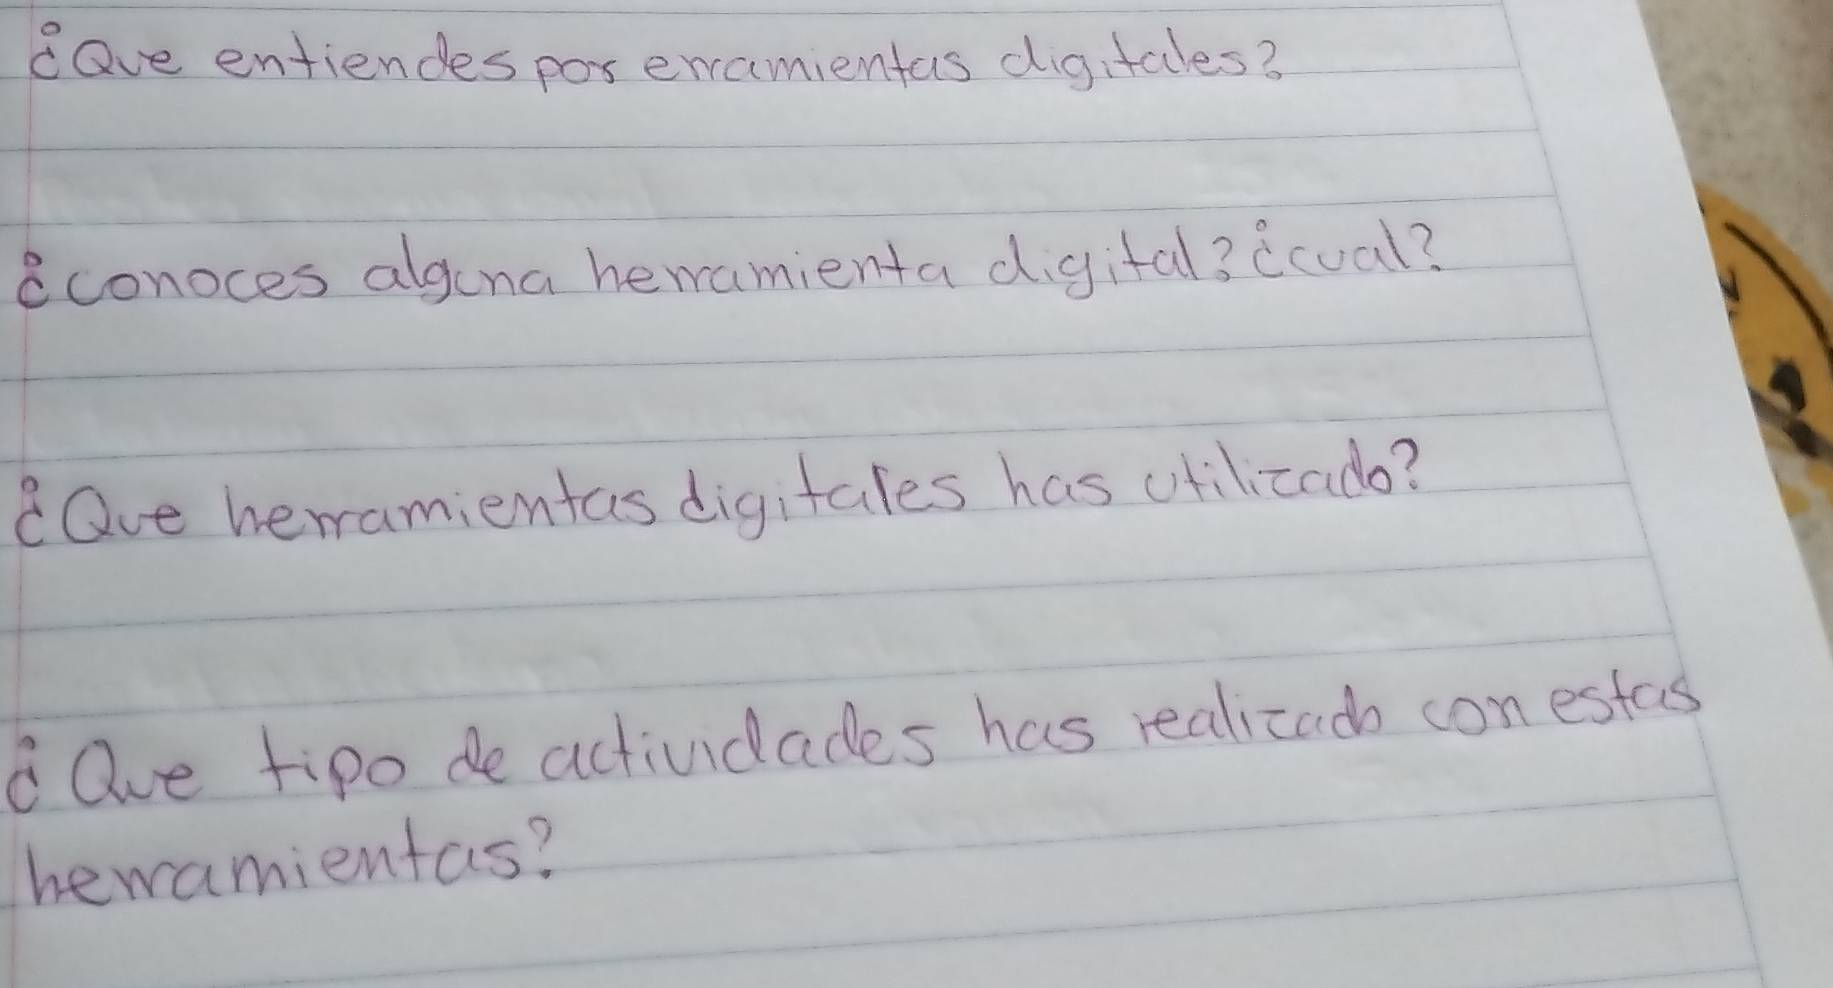 ¿Que entiendes por erramientas digitales?
¿conoces alguna herramienta digital? ¿cual?
¿Que herramientas digitales has utilizado?
¿Que tipo de actividades has realizado con estas
herramientas?